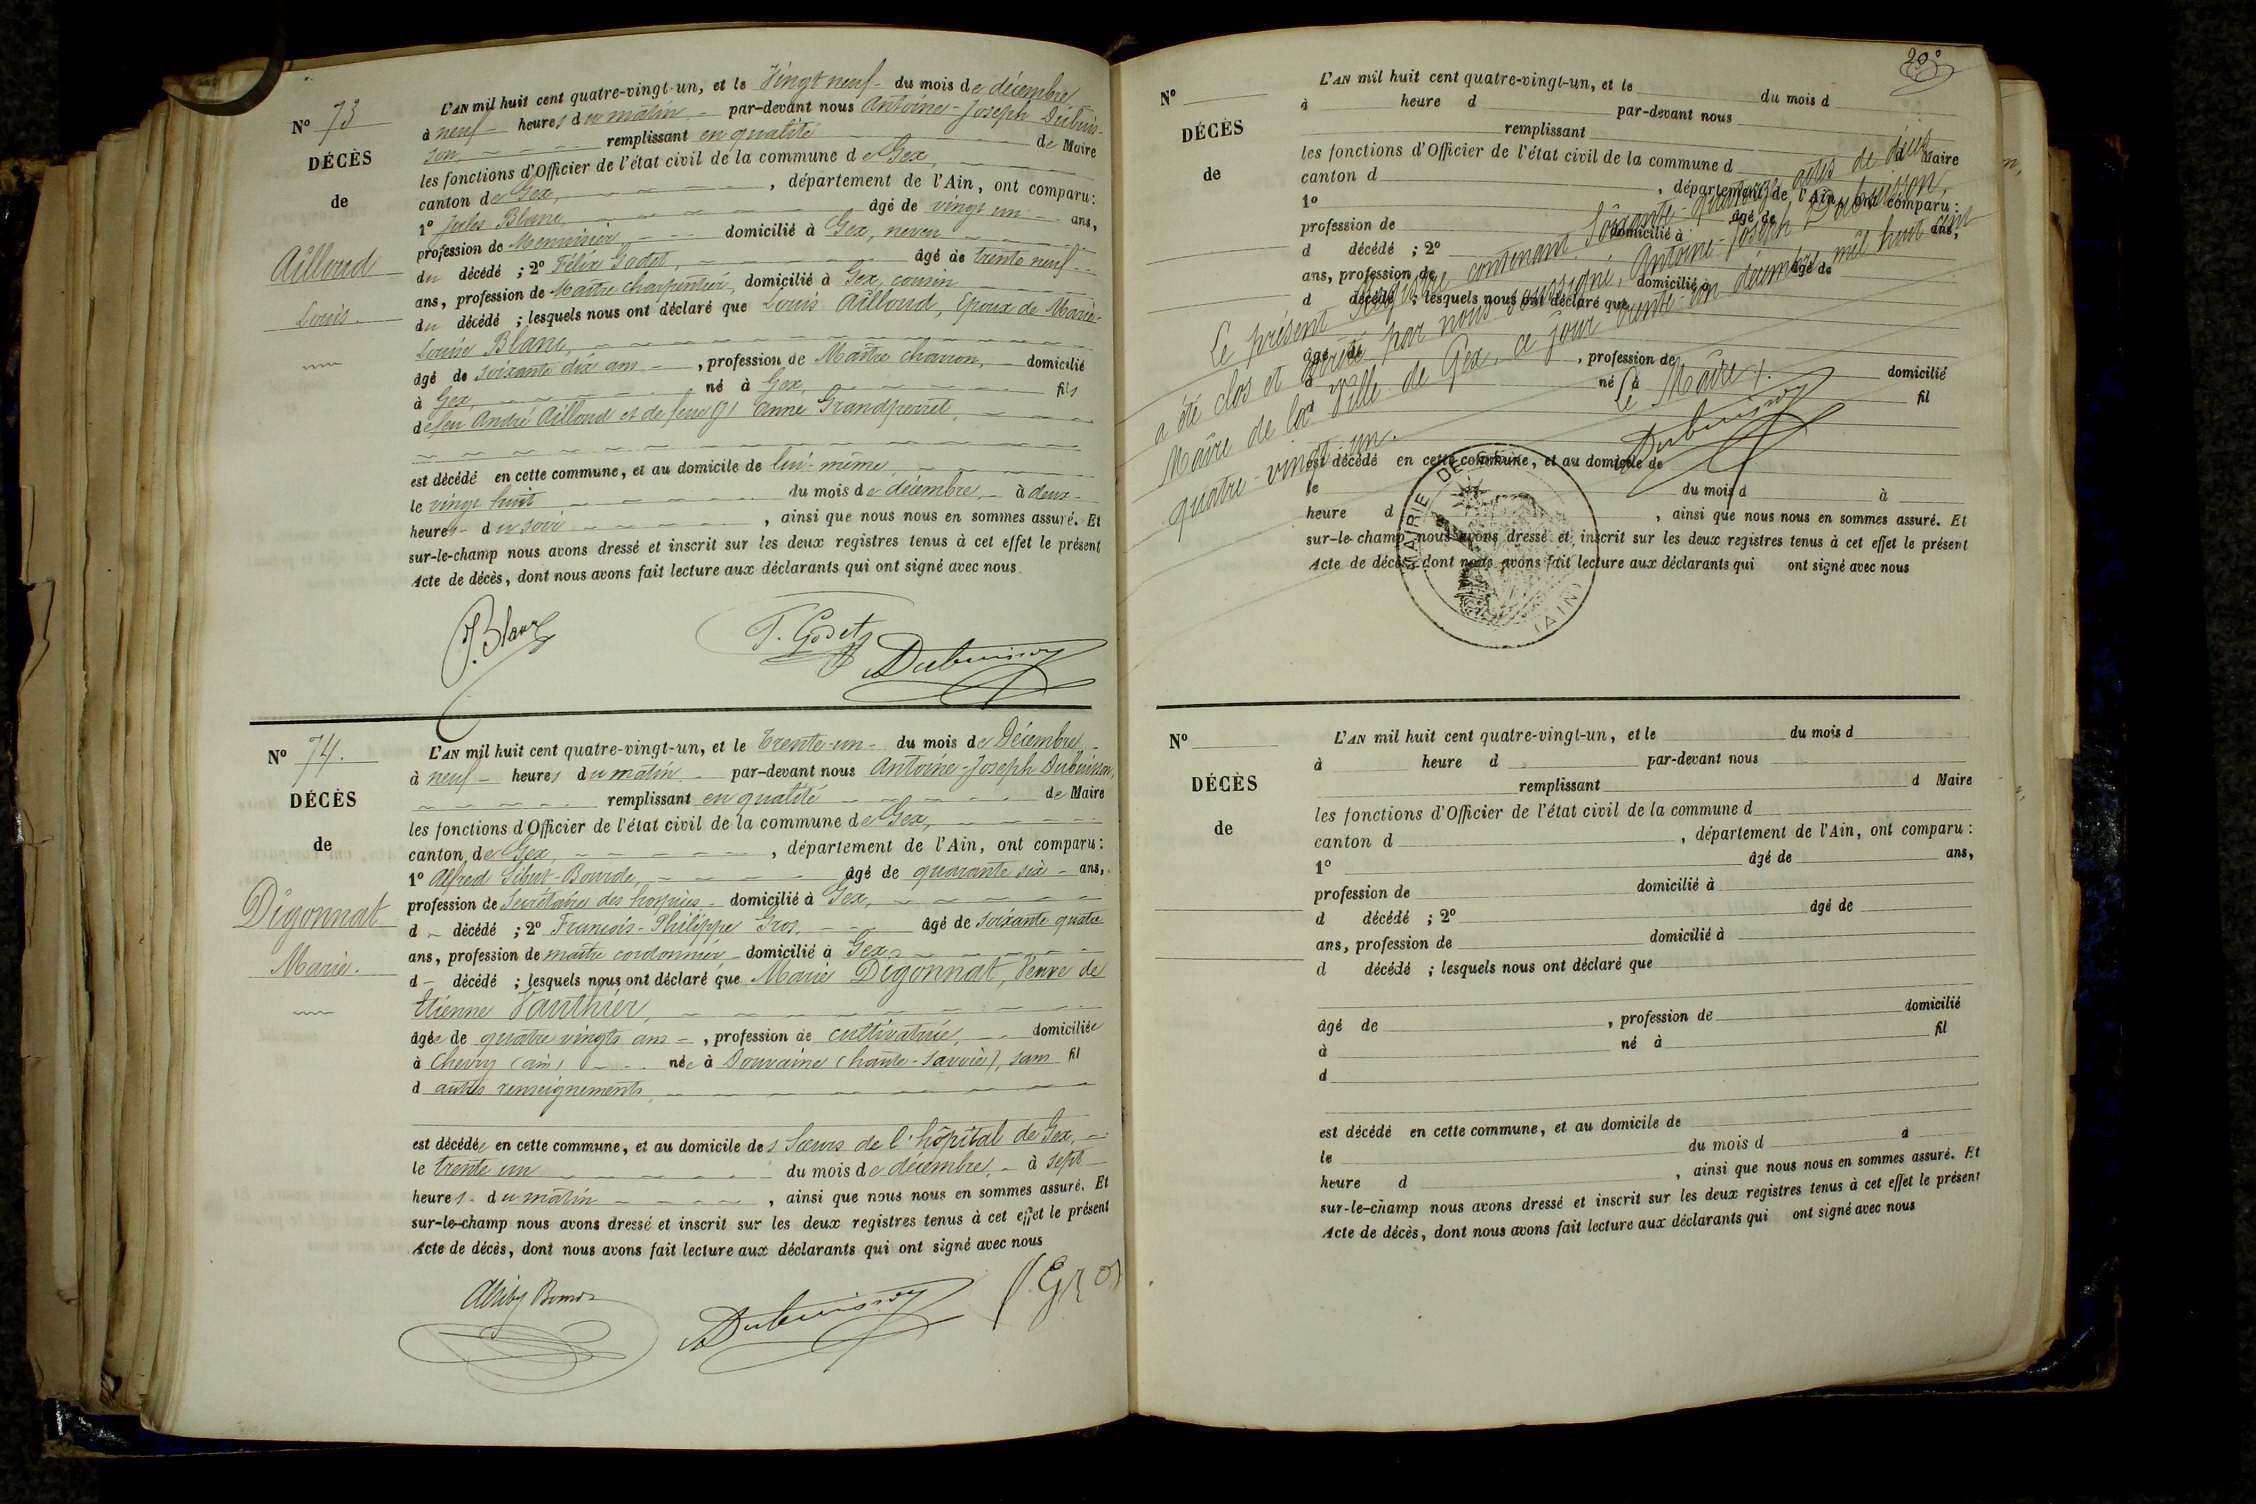 N° 73
DÉCÈS
de
Ailloud
Louis.
L'AN mil huit cent quatre-vingt-un, et le Vingt neuf du mois de décembre
à neuf heures du matin par-devant nous Antoine-Joseph Dubuis-
son, remplissant en qualité de Maire
les fonctions d'Officier de l'état civil de la commune de Gex,
canton de Gex, , département de l'Ain, ont comparu :
1° Jules Blanc âgé de vingt un ans,
profession de Menuisier domicilié à Gex, neveu
du décédé ; 2° Félix Godet, âgé de trente neuf
ans, profession de Maître charpentier, domicilié à Gex, cousin
du décédé ; lesquels nous ont déclaré que Louis Ailloud, époux de Marie-
Louise Blanc,
âgé de soixante dix ans , profession de Maître charron, domicilié
à Gex né à Gex, fils
de feu André Ailloud et de feue Anne Grandperret,
est décédé en cette commune, et au domicile de lui-même,
le vingt huit du mois de décembre, à deux
heures du soir , ainsi que nous nous en sommes assuré. Et
sur-le-champ nous avons dressé et inscrit sur les deux registres tenus à cet effet le présent
Acte de décès, dont nous avons fait lecture aux déclarants qui ont signé avec nous
J. Blanc
F. Godet
Dubuisson
N° 74.
DÉCÈS
de
Digonnat
Marie.
L'AN mil huit cent quatre-vingt-un, et le Trente-un du mois de Décembre
à neuf heures du matin par-devant nous Antoine-Joseph Dubuisson,
remplissant en qualité de Maire
les fonctions d'Officier de l'état civil de la commune de Gex,
canton de Gex, , département de l'Ain, ont comparu :
1° Alfred Sibut-Bourde, âgé de quarante six ans,
profession de Secrétaire des hospices domicilié à Gex,
d décédé ; 2° François-Philippe Gros, âgé de soixante quatre
ans, profession de maître cordonnier domicilié à Gex,
d décédé ; lesquels nous ont déclaré que Marie Digonnat, Veuve de
Etienne Vauthier,
âgée de quatre vingts ans , profession de cultivatrice, domiciliée
à Chevry (ain) née à Douvaine (haute-Savoie), sans fil
d autres renseignements
est décédée en cette commune, et au domicile des Sœurs de l'hôpital de Gex,
le trente un du mois de décembre, à sept
heures du matin , ainsi que nous nous en sommes assuré. Et
sur-le-champ nous avons dressé et inscrit sur les deux registres tenus à cet effet le présent
Acte de décès, dont nous avons fait lecture aux déclarants qui ont signé avec nous
Dubuisson
Gros
20e
N°
DÉCÈS
de
L'AN mil huit cent quatre-vingt-un, et le du mois d
à heure d par-devant nous
remplissant d Maire
les fonctions d'Officier de l'état civil de la commune d
canton d , département de l'Ain, ont comparu :
1° âgé de ans,
profession de domicilié à
d décédé ; 2° âgé de
ans, profession de domicilié à
d décédé ; lesquels nous ont déclaré que
âgé de , profession de domicilié
à né à fil
est décédé en cette commune, et au domicile de
le du mois d à
heure d , ainsi que nous nous en sommes assuré. Et
sur-le-champ nous avons dressé et inscrit sur les deux registres tenus à cet effet le présent
Acte de décès, dont nous avons fait lecture aux déclarants qui ont signé avec nous
Le présent Registre contenant Soixante-quatorze actes de décès
a été clos et arrêté par nous soussigné, Antoine-Joseph Dubuisson,
Maire de la Ville de Gex, ce jour trente-un décembre mil huit cent
quatre-vingt-un.
Le Maire,
Dubuisson
MAIRIE DE GEX
(AIN)
N°
DÉCÈS
de
L'AN mil huit cent quatre-vingt-un, et le du mois d
à heure d par-devant nous
remplissant d Maire
les fonctions d'Officier de l'état civil de la commune d
canton d , département de l'Ain, ont comparu :
1° âgé de ans,
profession de domicilié à
d décédé ; 2° âgé de
ans, profession de domicilié à
d décédé ; lesquels nous ont déclaré que
âgé de , profession de domicilié
à né à fil
d
est décédé en cette commune, et au domicile de
le du mois d à
heure d , ainsi que nous nous en sommes assuré. Et
sur-le-champ nous avons dressé et inscrit sur les deux registres tenus à cet effet le présent
Acte de décès, dont nous avons fait lecture aux déclarants qui ont signé avec nous